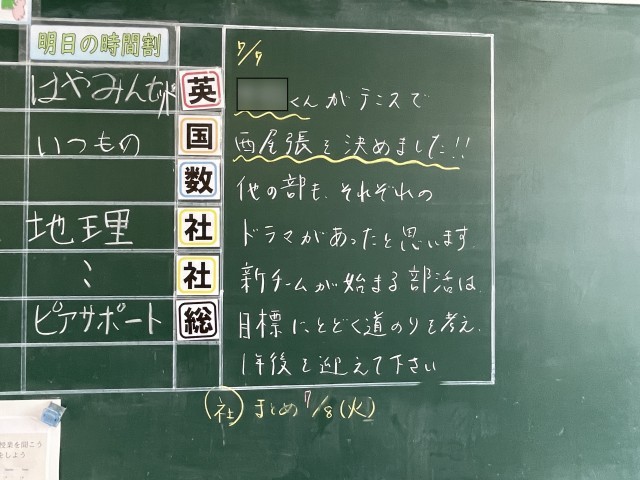 明日の時間割
英
いつもの 国
数
地理 社
〻 社
ピアサポート 総
7/7
くんがテニスで
西尾張を決めました!!
他の部も、それぞれの
ドラマがあったと思います
新チームが始まる部活は、
目標にとどく道のりを考え、
1年後を迎えて下さい
社 まとめ 7/8(火)
授業を聞こう
をしよう